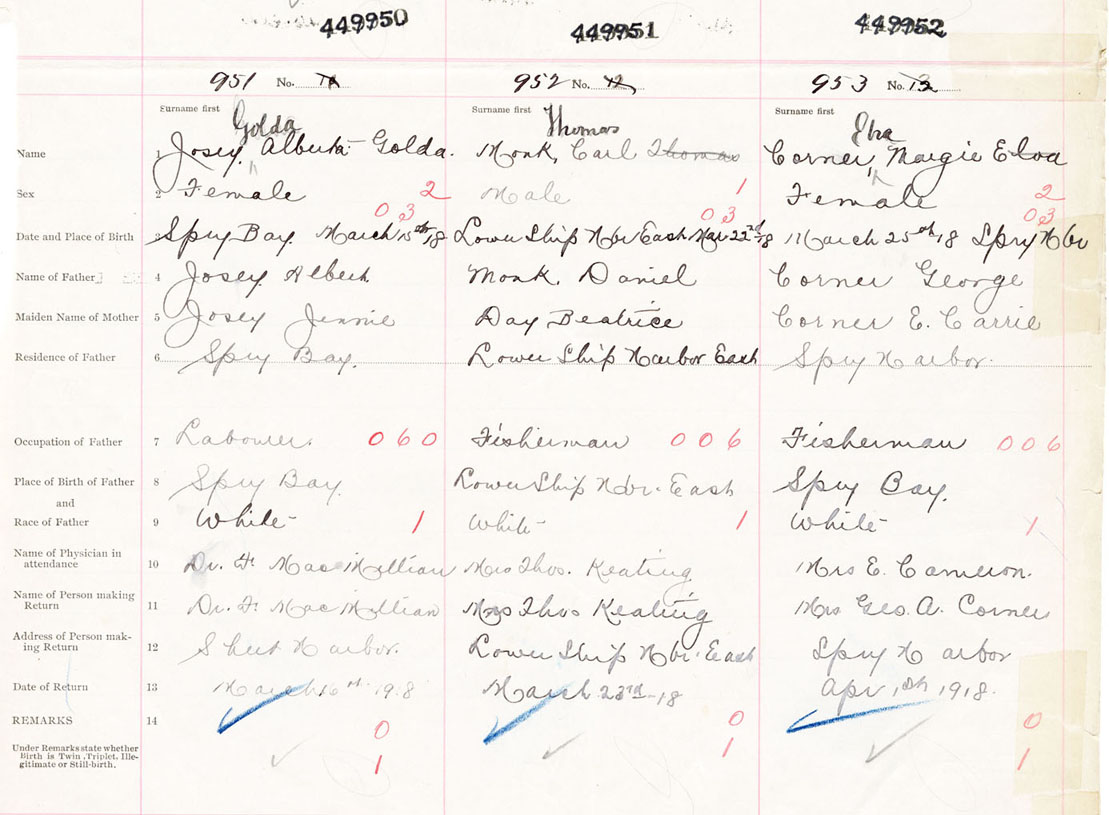 449950 449951 449952
951 No. 11 952 No. 12 953 No. 13
Surname first Surname first Surname first
Golda Thomas Elva
Name 1 Josey, Alberta Golda. Monk, Carl Thomas Corner, Margie Elva
Sex 2 Female 2 Male 1 Female 2
03 03 03
Date and Place of Birth 3 Spry Bay. March 15th/18 Lower Ship Hbr East Mar 22nd/18 March 25th/18 Spry Hbr
Name of Father 4 Josey. Albert. Monk. Daniel Corner George
Maiden Name of Mother 5 Josey Jennie Day Beatrice Corner E. Carrie
Residence of Father 6 Spry Bay. Lower Ship Harbor East Spry Harbor.
Occupation of Father 7 Labourer. 060 Fisherman 006 Fisherman 006
Place of Birth of Father 8 Spry Bay. Lower Ship Hbr. East Spry Bay.
and
Race of Father 9 White 1 White 1 White 1
Name of Physician in
attendance 10 Dr. F. MacMillian Mrs Thos. Keating Mrs E. Cameron.
Name of Person making
Return 11 Dr. F. MacMillian Mrs Thos Keating Mrs Geo. A. Corner
Address of Person mak-
ing Return 12 Sheet Harbor. Lower Ship Hbr. East Spry Harbor
Date of Return 13 March 16th 1918 March 23rd-18 Apr 1918.
REMARKS 14 0 0 0
Under Remarks state whether
Birth is Twin, Triplet, Ille-
gitimate or Still-birth. 1 1 1